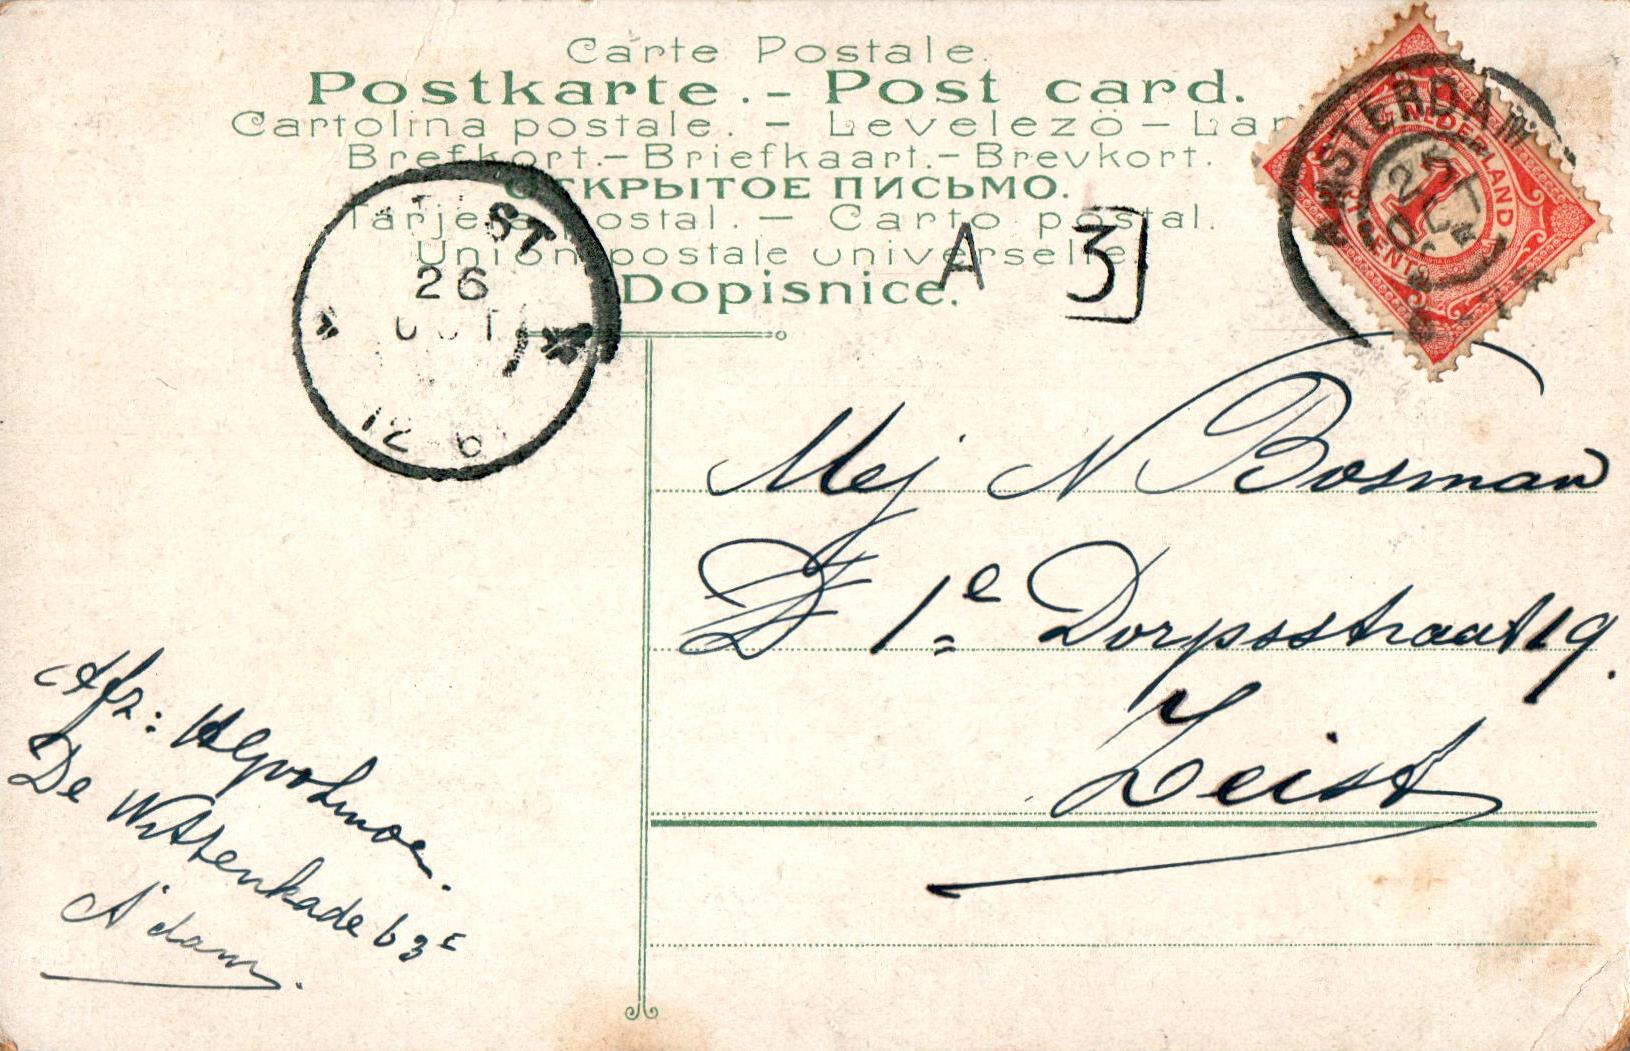 Carte Postale.
Postkarte. - Post card.
Cartolina postale. - Levelezö - Lap
Brefkort. - Briefkaart. - Brevkort.
ОТКРЫТОЕ ПИСЬМО.
Tarjeta postal. - Carto postal.
Union postale universelle.
Dopisnice.
A 3
AMSTERDAM
NEDERLAND
1
CENT
26
OCT
Mej N Bosman
1e Dorpsstraat 19.
Zeist
Afz:
De Wittenkade 63c
A'dam.